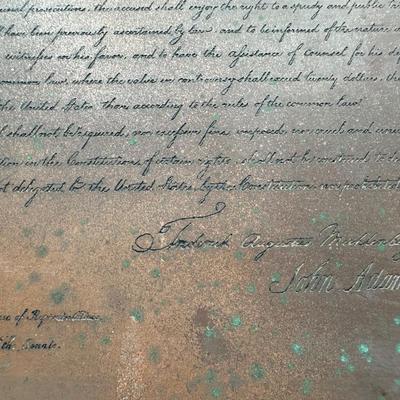 inal prosecutions, the accused shall enjoy the right to a speedy and public tri
ll have been previously ascertained by law, and to be informed of the nature a
witnesses in his favor, and to have the assistance of Counsel for his de
ommon law, where the value in controversy shall exceed twenty dollars, the
the United States, than according to the rules of the common law.
l shall not be required, nor excessive fines imposed, nor cruel and unus
tion in the Constitution, of certain rights, shall not be construed to de
ot delegated to the United States by the Constitution, nor prohibited
Frederick Augustus Muhlenbe
John Adam
use of Representatives
the Senate.